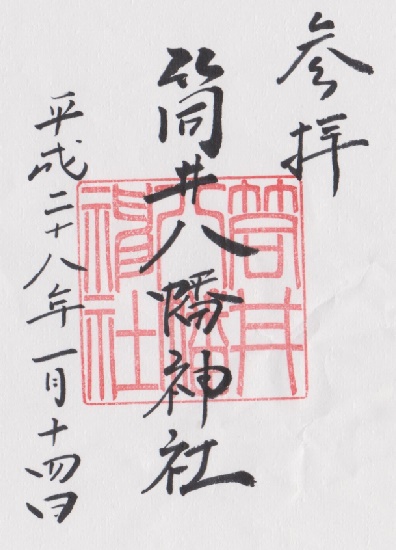 参拝
筒井八幡神社
平成二十八年一月十四日
筒井
八幡
神社